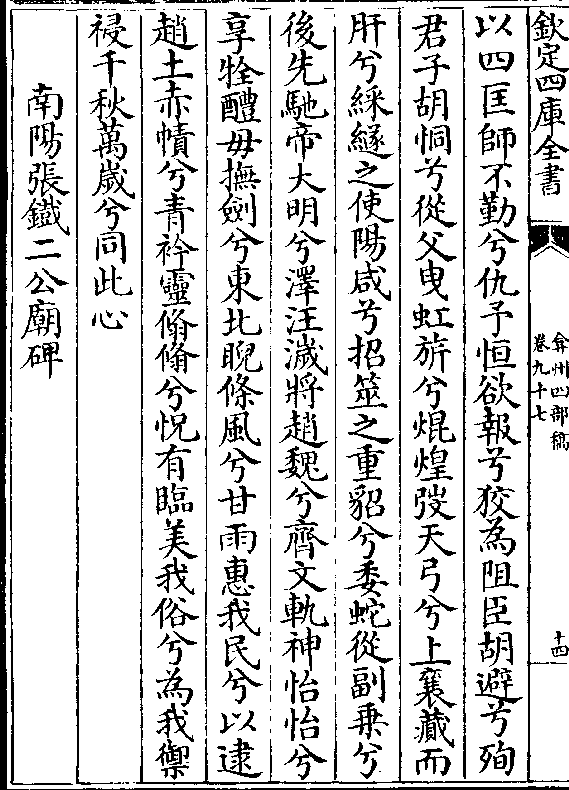 欽定四庫全書
弇州四部稿
卷九十七
十四
以四匡師不勤兮仇予恒欲報兮狡為阻臣胡避兮殉
君子胡恫兮從父曳虹旂兮焜煌弢天弓兮上襄藏而
肝兮綵縁之使陽咸兮招筮之重貂兮委蛇從副乗兮
後先馳帝大明兮澤汪濊將趙魏兮齊文軌神怡怡兮
享牷醴毋撫劍兮東北睨條風兮甘雨惠我民兮以逮
趙土赤幘兮青衿靈翛翛兮怳有臨美我俗兮為我禦
祲千秋萬歲兮同此心
南陽張鐵二公廟碑